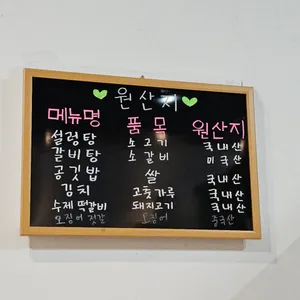 원산지
메뉴명 품목 원산지
설렁탕 소고기 국내산
갈비탕 소갈비 미국산
공깃밥 쌀 국내산
김치 고춧가루 국내산
소제 떡갈비 돼지고기 국내산
오징어 젓갈 오징어 중국산